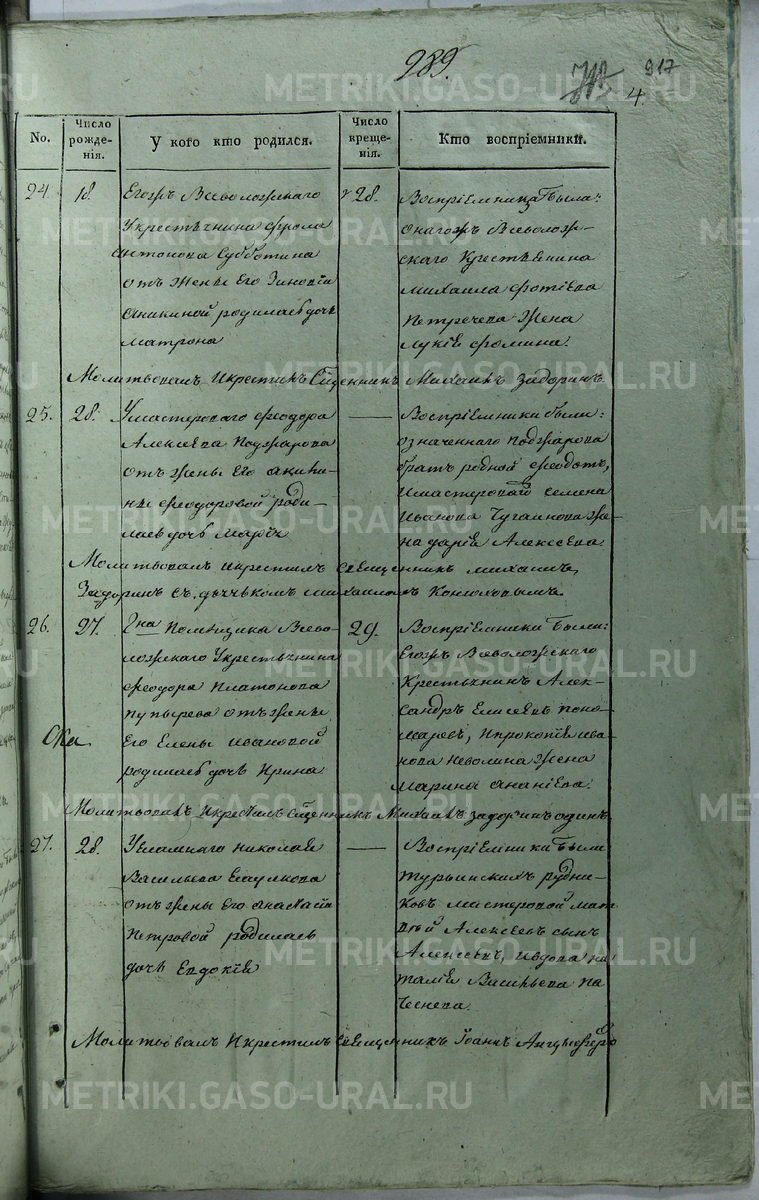 289.
917
4
No.
Число рожденія.
У кого кто родился.
Число крещенія.
Кто воспріемники.
24.
18.
Егожъ Всеволожскаго
Укрестьянина Фрола
Антонова Субботина
отъ жены Его Зиновіи
Аникиной родилась дочь
Матрона
28.
Воспріемница была:
онагожъ Всеволож-
скаго Крестьянина
Михаила Фотіева
Петречева Жена
Лукія Фомина.
Молитвовалъ Икрестилъ Сщенникъ Михаилъ Задоринъ
25.
28.
Умастероваго Феодора
Алексеева Поджарова
отъ жены Его Акили-
ны Феодоровой роди-
лась дочь Марія
Воспріемники были:
означеннаго Поджарова
братъ родной Феодотъ,
Имастероваго Семена
Иванова Жe-
на Дарія Алексеева
Молитвовалъ Икрестилъ Священникъ Михаилъ
Задоринъ съ дьячькомъ Михаиломъ Конюховымъ
26.
27.
2на Помещика Всево-
ложскаго Укрестьянина
Феодора Платонова
Пупырева отъ жены
Его Елены Ивановой
родилась дочь Ирина
Ока
29.
Воспріемники были:
Егожъ Всеволожскаго
Крестьянинъ Алек-
сандръ Елисеевъ Поно-
маревъ, Ипрокопія Ива-
нова Неволина Жена
Марина Ананіева.
Молитвовалъ Икрестилъ Сщенникъ Михаилъ Задоринъ одинъ
27.
28.
Николая
Васильева Есаулкова
отъ жены Его Анастасіи
Петровой родилась
дочь Евдокія
Воспріемники были
Турьинскихъ рудни-
ковъ мастеровой Мат
вей Алексеевъ сынъ
Алексеевъ, Ивдова На
талія Васильева Па
Молитвовалъ Икрестилъ Священникъ Іоаннъ
METRIKI.GASO-URAL.RU
METRIKI.GASO-URAL.RU
METRIKI.GASO-URAL.RU
METRIKI.GASO-URAL.RU
METRIKI.GASO-URAL.RU
METRIKI.GASO-URAL.RU
METRIKI.GASO-URAL.RU
METRIKI.GASO-URAL.RU